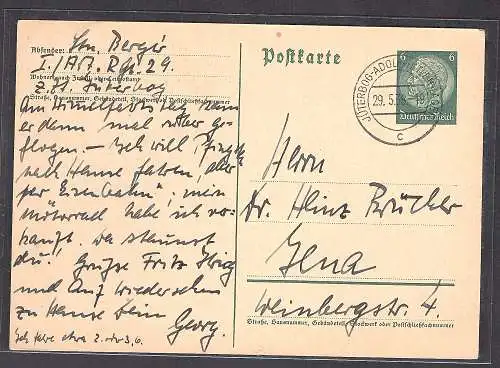 Absender: Ltn. Berger
I./A.R. Rgt. 29.
Wohnort, auch Zustell- oder Leitpostamt
z. Zt. Jüterbog
Straße, Hausnummer, Gebäudeteil, Stockwerk od. Postschließfachnummer
Am Himmelfahrtstag kam
er denn mal rüber ge-
flogen. — Ich will Pfingsten
nach Hause fahren, aber
per Eisenbahn. mein
Motorrad habe ich ver-
kauft. Da staunst
du! Grüße Fritz
und Auf Wiedersehen
zu Hause Dein
Georg.
Ich fahre etwa 2. oder 3.6.
Postkarte
6 6
Deutsches Reich
JÜTERBOG-ADOL
29.5.
c
Herrn
Dr. Heinz Brücher
Jena
Weinbergstr. 4.
Straße, Hausnummer, Gebäudeteil, Stockwerk oder Postschließfachnummer